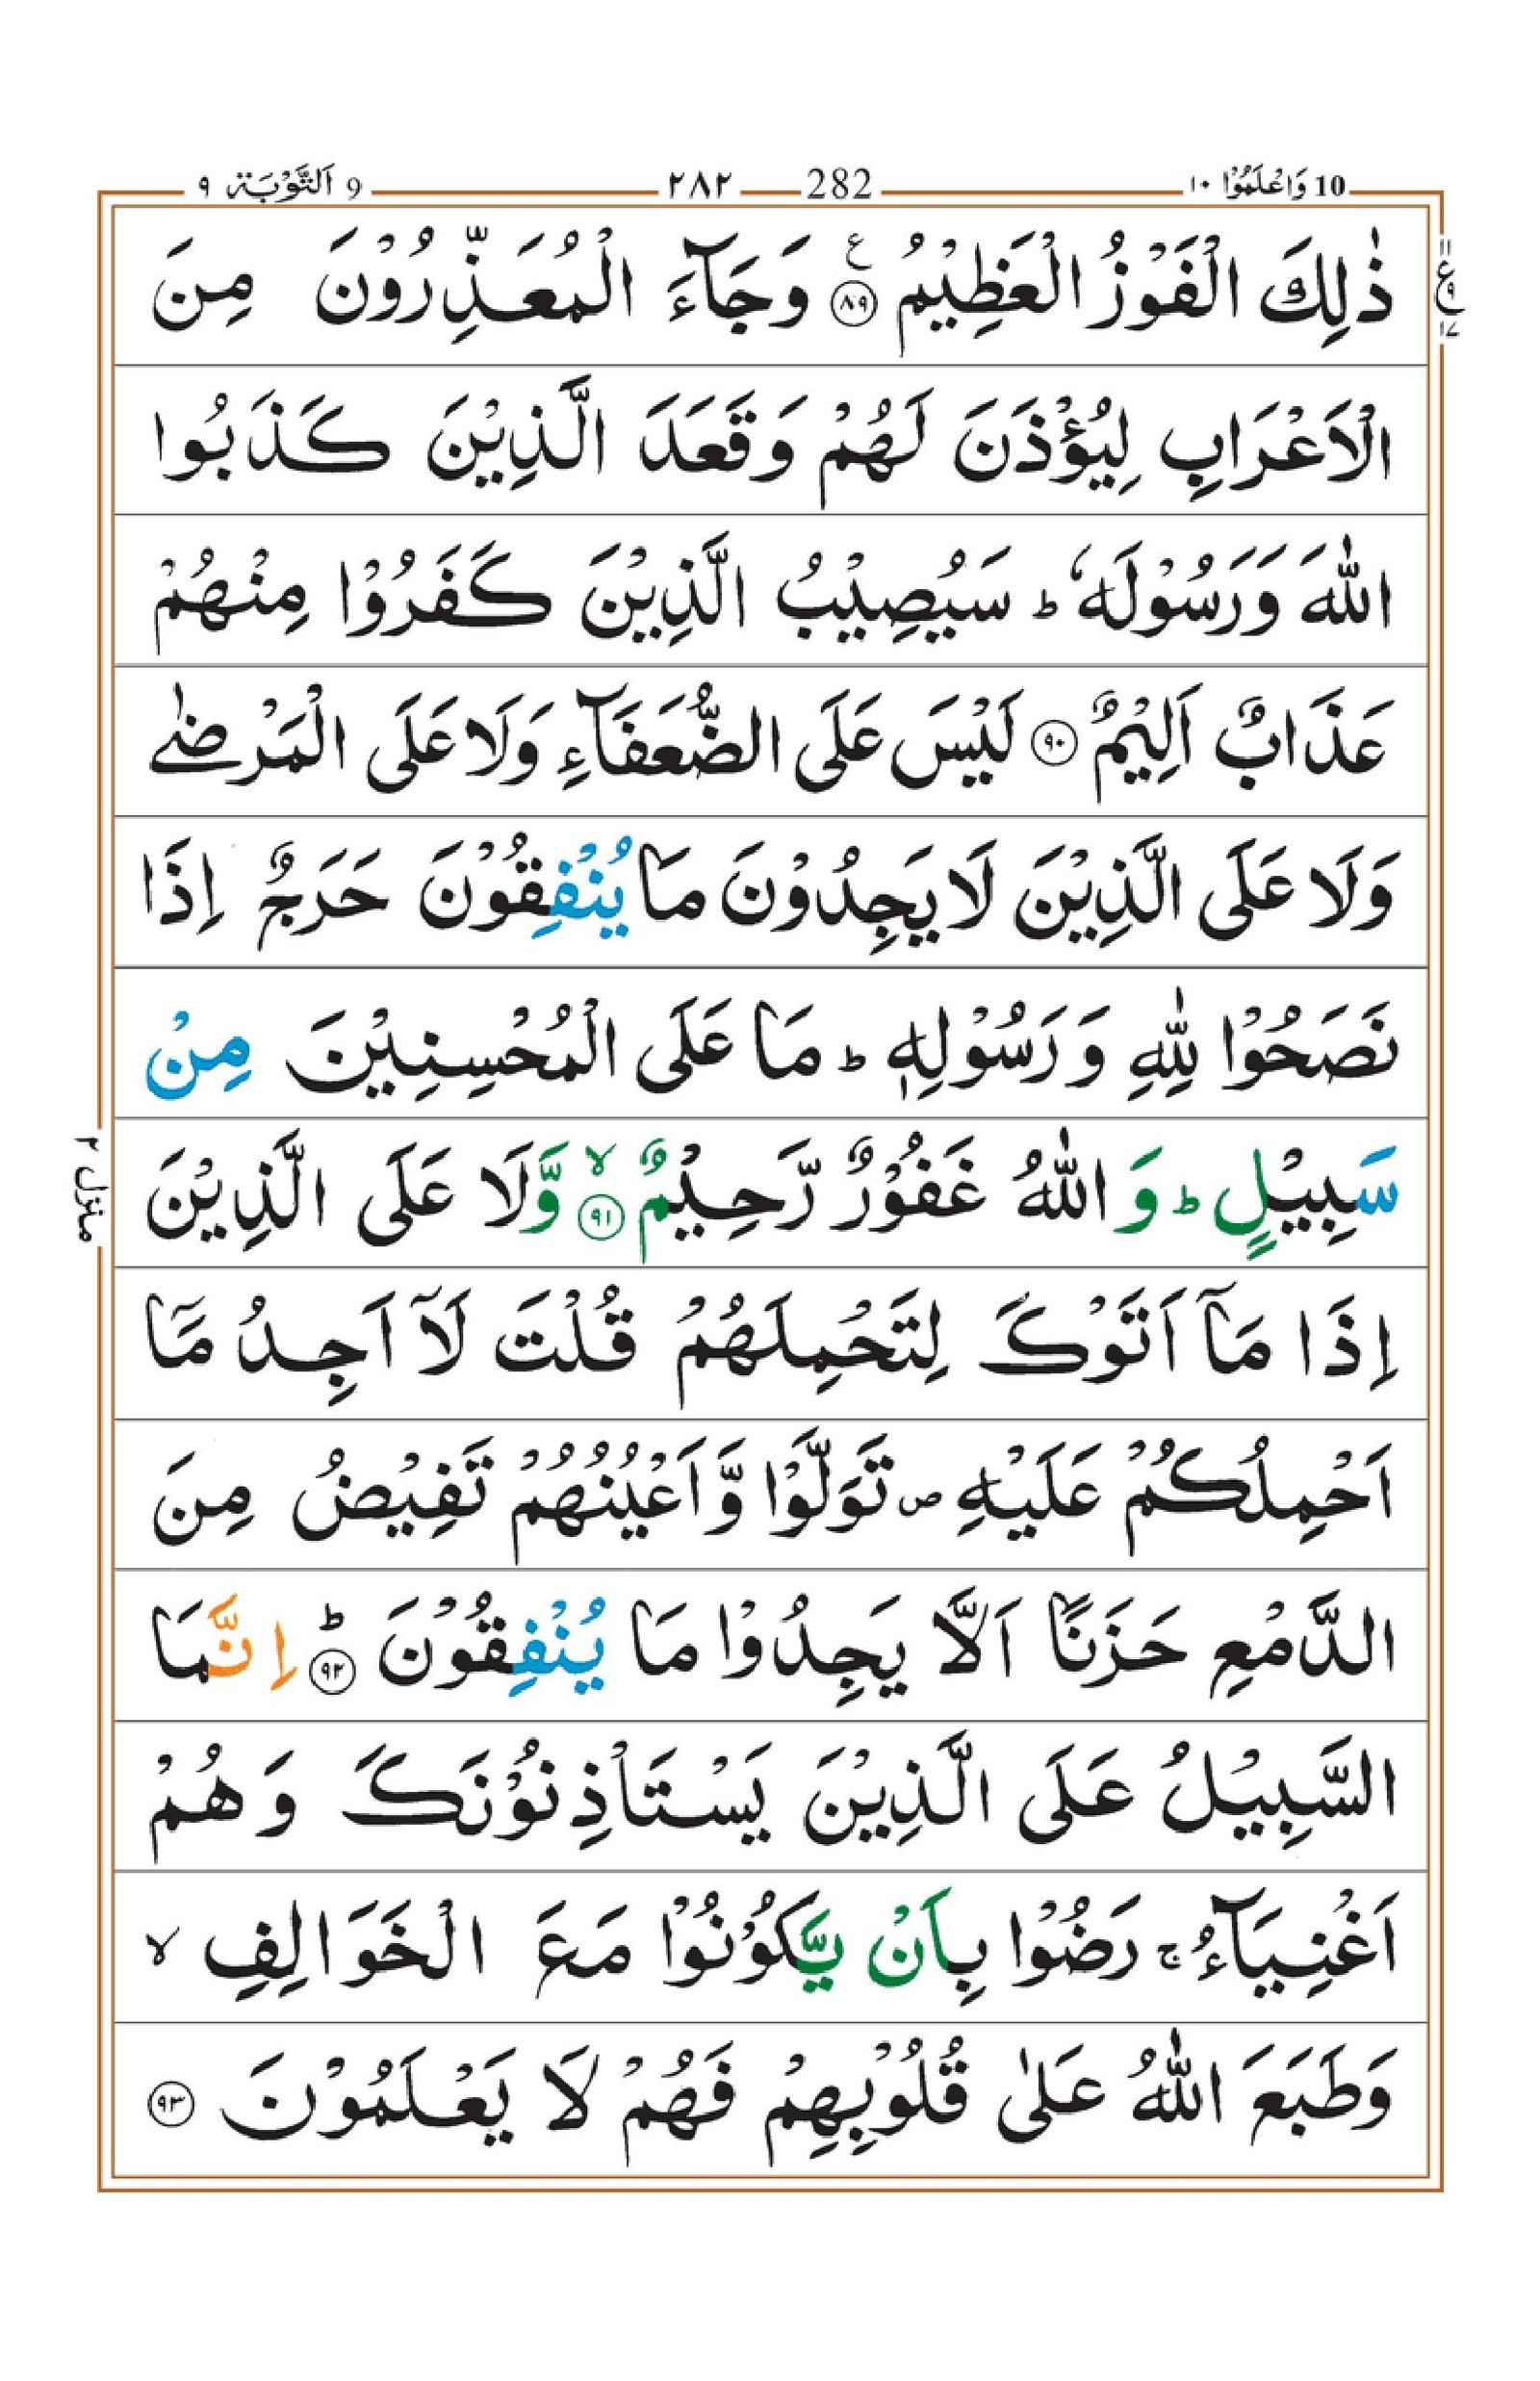 10 وَاعْلَمُوْۤا ١٠ 282 ٢٨٢ 9 اَلتَّوْبَة ٩
ذٰلِكَ الْفَوْزُ الْعَظِيْمُ ع ٨٩ وَجَآءَ الْمُعَذِّرُوْنَ مِنَ
الْاَعْرَابِ لِيُؤْذَنَ لَهُمْ وَقَعَدَ الَّذِيْنَ كَذَبُوا
اللّٰهَ وَرَسُوْلَهٗ ؕ سَيُصِيْبُ الَّذِيْنَ كَفَرُوْا مِنْهُمْ
عَذَابٌ اَلِيْمٌ ٩٠ لَيْسَ عَلَى الضُّعَفَآءِ وَلَا عَلَى الْمَرْضٰى
وَلَا عَلَى الَّذِيْنَ لَا يَجِدُوْنَ مَا يُنْفِقُوْنَ حَرَجٌ اِذَا
نَصَحُوْا لِلّٰهِ وَرَسُوْلِهٖ ؕ مَا عَلَى الْمُحْسِنِيْنَ مِنْ
سَبِيْلٍ ؕ وَاللّٰهُ غَفُوْرٌ رَّحِيْمٌ ۙ ٩١ وَّلَا عَلَى الَّذِيْنَ
اِذَا مَاۤ اَتَوْكَ لِتَحْمِلَهُمْ قُلْتَ لَاۤ اَجِدُ مَاۤ
اَحْمِلُكُمْ عَلَيْهِ ص تَوَلَّوْا وَّاَعْيُنُهُمْ تَفِيْضُ مِنَ
الدَّمْعِ حَزَنًا اَلَّا يَجِدُوْا مَا يُنْفِقُوْنَ ؕ ٩٢ اِنَّمَا
السَّبِيْلُ عَلَى الَّذِيْنَ يَسْتَاْذِنُوْنَكَ وَهُمْ
اَغْنِيَآءُ ۚ رَضُوْا بِاَنْ يَّكُوْنُوْا مَعَ الْخَوَالِفِ ۙ
وَطَبَعَ اللّٰهُ عَلٰى قُلُوْبِهِمْ فَهُمْ لَا يَعْلَمُوْنَ ٩٣
١١ ع ٩ ١٧
منزل ٢